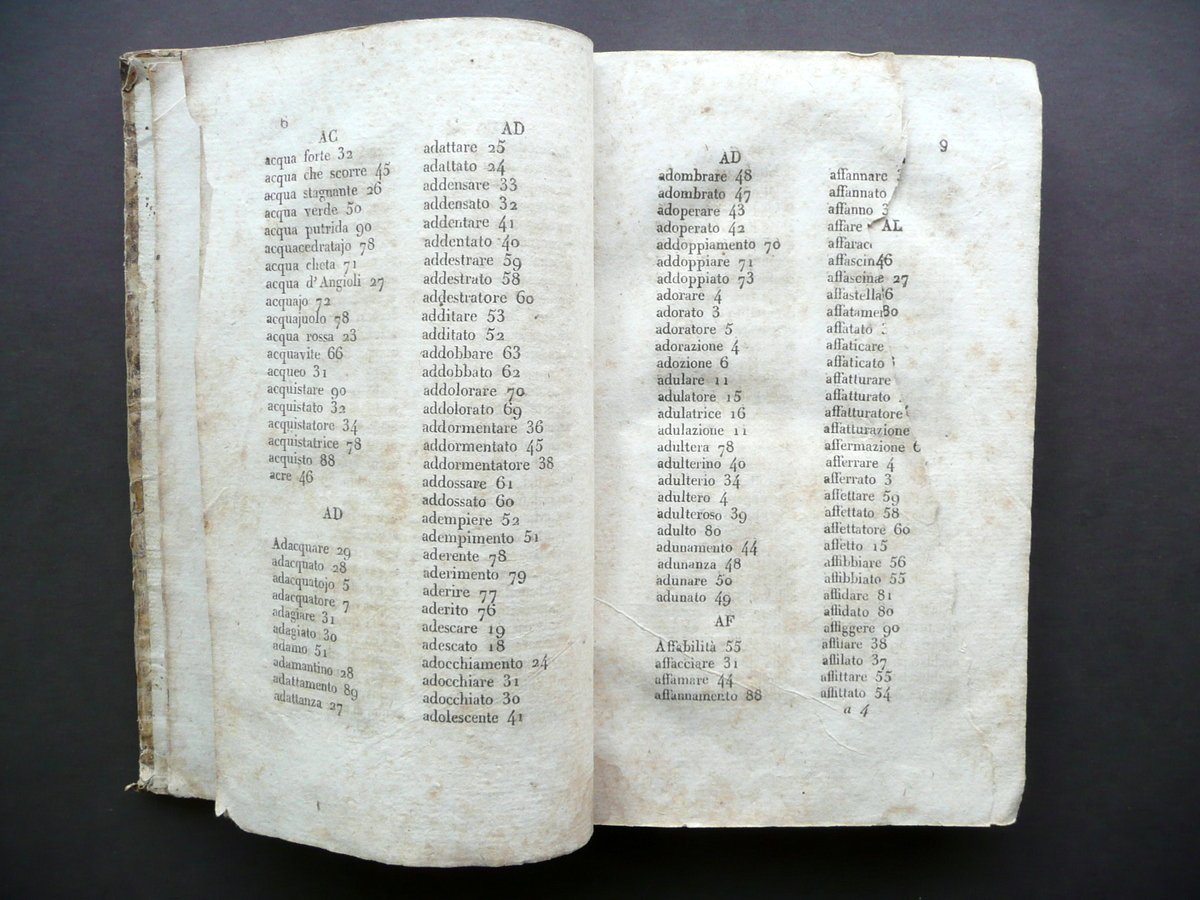 6
AC
acqua forte 32
acqua che scorre 45
acqua stagnante 26
acqua verde 50
acqua putrida 90
acquacedratajo 78
acqua cheta 71
acqua d'Angioli 27
acquajo 72
acquajuolo 78
acqua rossa 23
acquavite 66
acqueo 31
acquistare 90
acquistato 32
acquistatore 34
acquistatrice 78
acquisto 88
acre 46
AD
Adacquare 29
adacquato 28
adacquatojo 5
adacquatore 7
adagiare 31
adagiato 30
adamo 51
adamantino 28
adattamento 89
adattanza 27
AD
adattare 25
adattato 24
addensare 33
addensato 32
addentare 41
addentato 40
addestrare 59
addestrato 58
addestratore 60
additare 53
additato 52
addobbare 63
addobbato 62
addolorare 70
addolorato 69
addormentare 36
addormentato 45
addormentatore 38
addossare 61
addossato 60
adempiere 52
adempimento 51
aderente 78
aderimento 79
aderire 77
aderito 76
adescare 19
adescato 18
adocchiamento 24
adocchiare 31
adocchiato 30
adolescente 41
9
AD
adombrare 48
adombrato 47
adoperare 43
adoperato 42
addoppiamento 70
addoppiare 71
addoppiato 73
adorare 4
adorato 3
adoratore 5
adorazione 4
adozione 6
adulare 11
adulatore 15
adulatrice 16
adulazione 11
adultera 78
adulterino 40
adulterio 34
adultero 4
adulteroso 39
adulto 80
adunamento 44
adunanza 48
adunare 50
adunato 49
AF
Affabilità 55
affacciare 31
affamare 44
affannamento 88
affannare
affannato
affanno 3
affare AL
affarac
affascin 46
affascinæ 27
affastella 6
affatame 80
affatato
affaticare
affaticato
affatturare
affatturato
affatturatore
affatturazione
affermazione 6
afferrare 4
afferrato 3
affettare 59
affettato 58
affettatore 60
affetto 15
affibbiare 56
affibbiato 55
affidare 81
affidato 80
affliggere 90
affilare 38
affilato 37
affittare 55
affittato 54
a 4